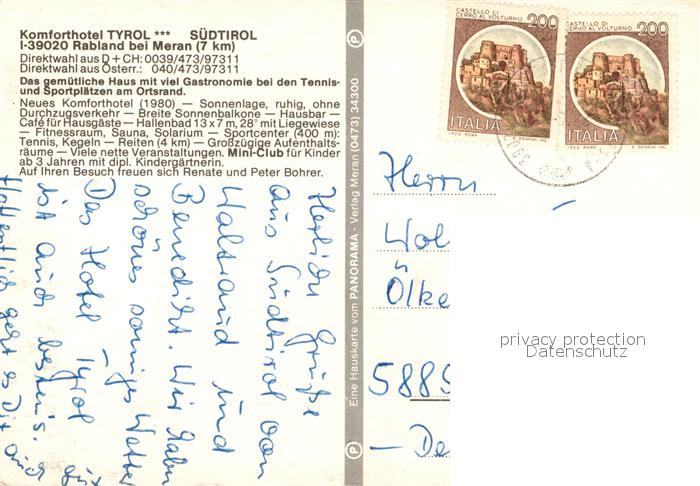 Komforthotel TYROL *** SÜDTIROL
I-39020 Rabland bei Meran (7 km)
Direktwahl aus D + CH: 0039/473/97311
Direktwahl aus Österr.: 040/473/97311
Das gemütliche Haus mit viel Gastronomie bei den Tennis-
und Sportplätzen am Ortsrand.
Neues Komforthotel (1980) — Sonnenlage, ruhig, ohne
Durchzugsverkehr — Breite Sonnenbalkone — Hausbar —
Café für Hausgäste — Hallenbad 13 x 7 m, 28° mit Liegewiese
— Fitnessraum, Sauna, Solarium — Sportcenter (400 m):
Tennis, Kegeln — Reiten (4 km) — Großzügige Aufenthalts-
räume — Viele nette Veranstaltungen. Mini-Club für Kinder
ab 3 Jahren mit dipl. Kindergärtnerin.
Auf Ihren Besuch freuen sich Renate und Peter Bohrer.
Herzliche Grüße
aus Südtirol von
Waltraud und
Benedikt. Wir haben
schönes sonniges Wetter
Das Hotel Tyrol
ist auch bestens.
Hoffentlich geht es Dir auch
P
Eine Hauskarte vom PANORAMA - Verlag Meran (0473) 34300
P
CASTELLO DI
CERRO AL VOLTURNO
200
ITALIA
I.P.Z.S. ROMA
E. DONNINI INC.
CASTELLO DI
CERRO AL VOLTURNO
200
ITALIA
I.P.Z.S. ROMA
E. DONNINI INC.
Herrn
Wol
Ölke
5885
- De
privacy protection
Datenschutz